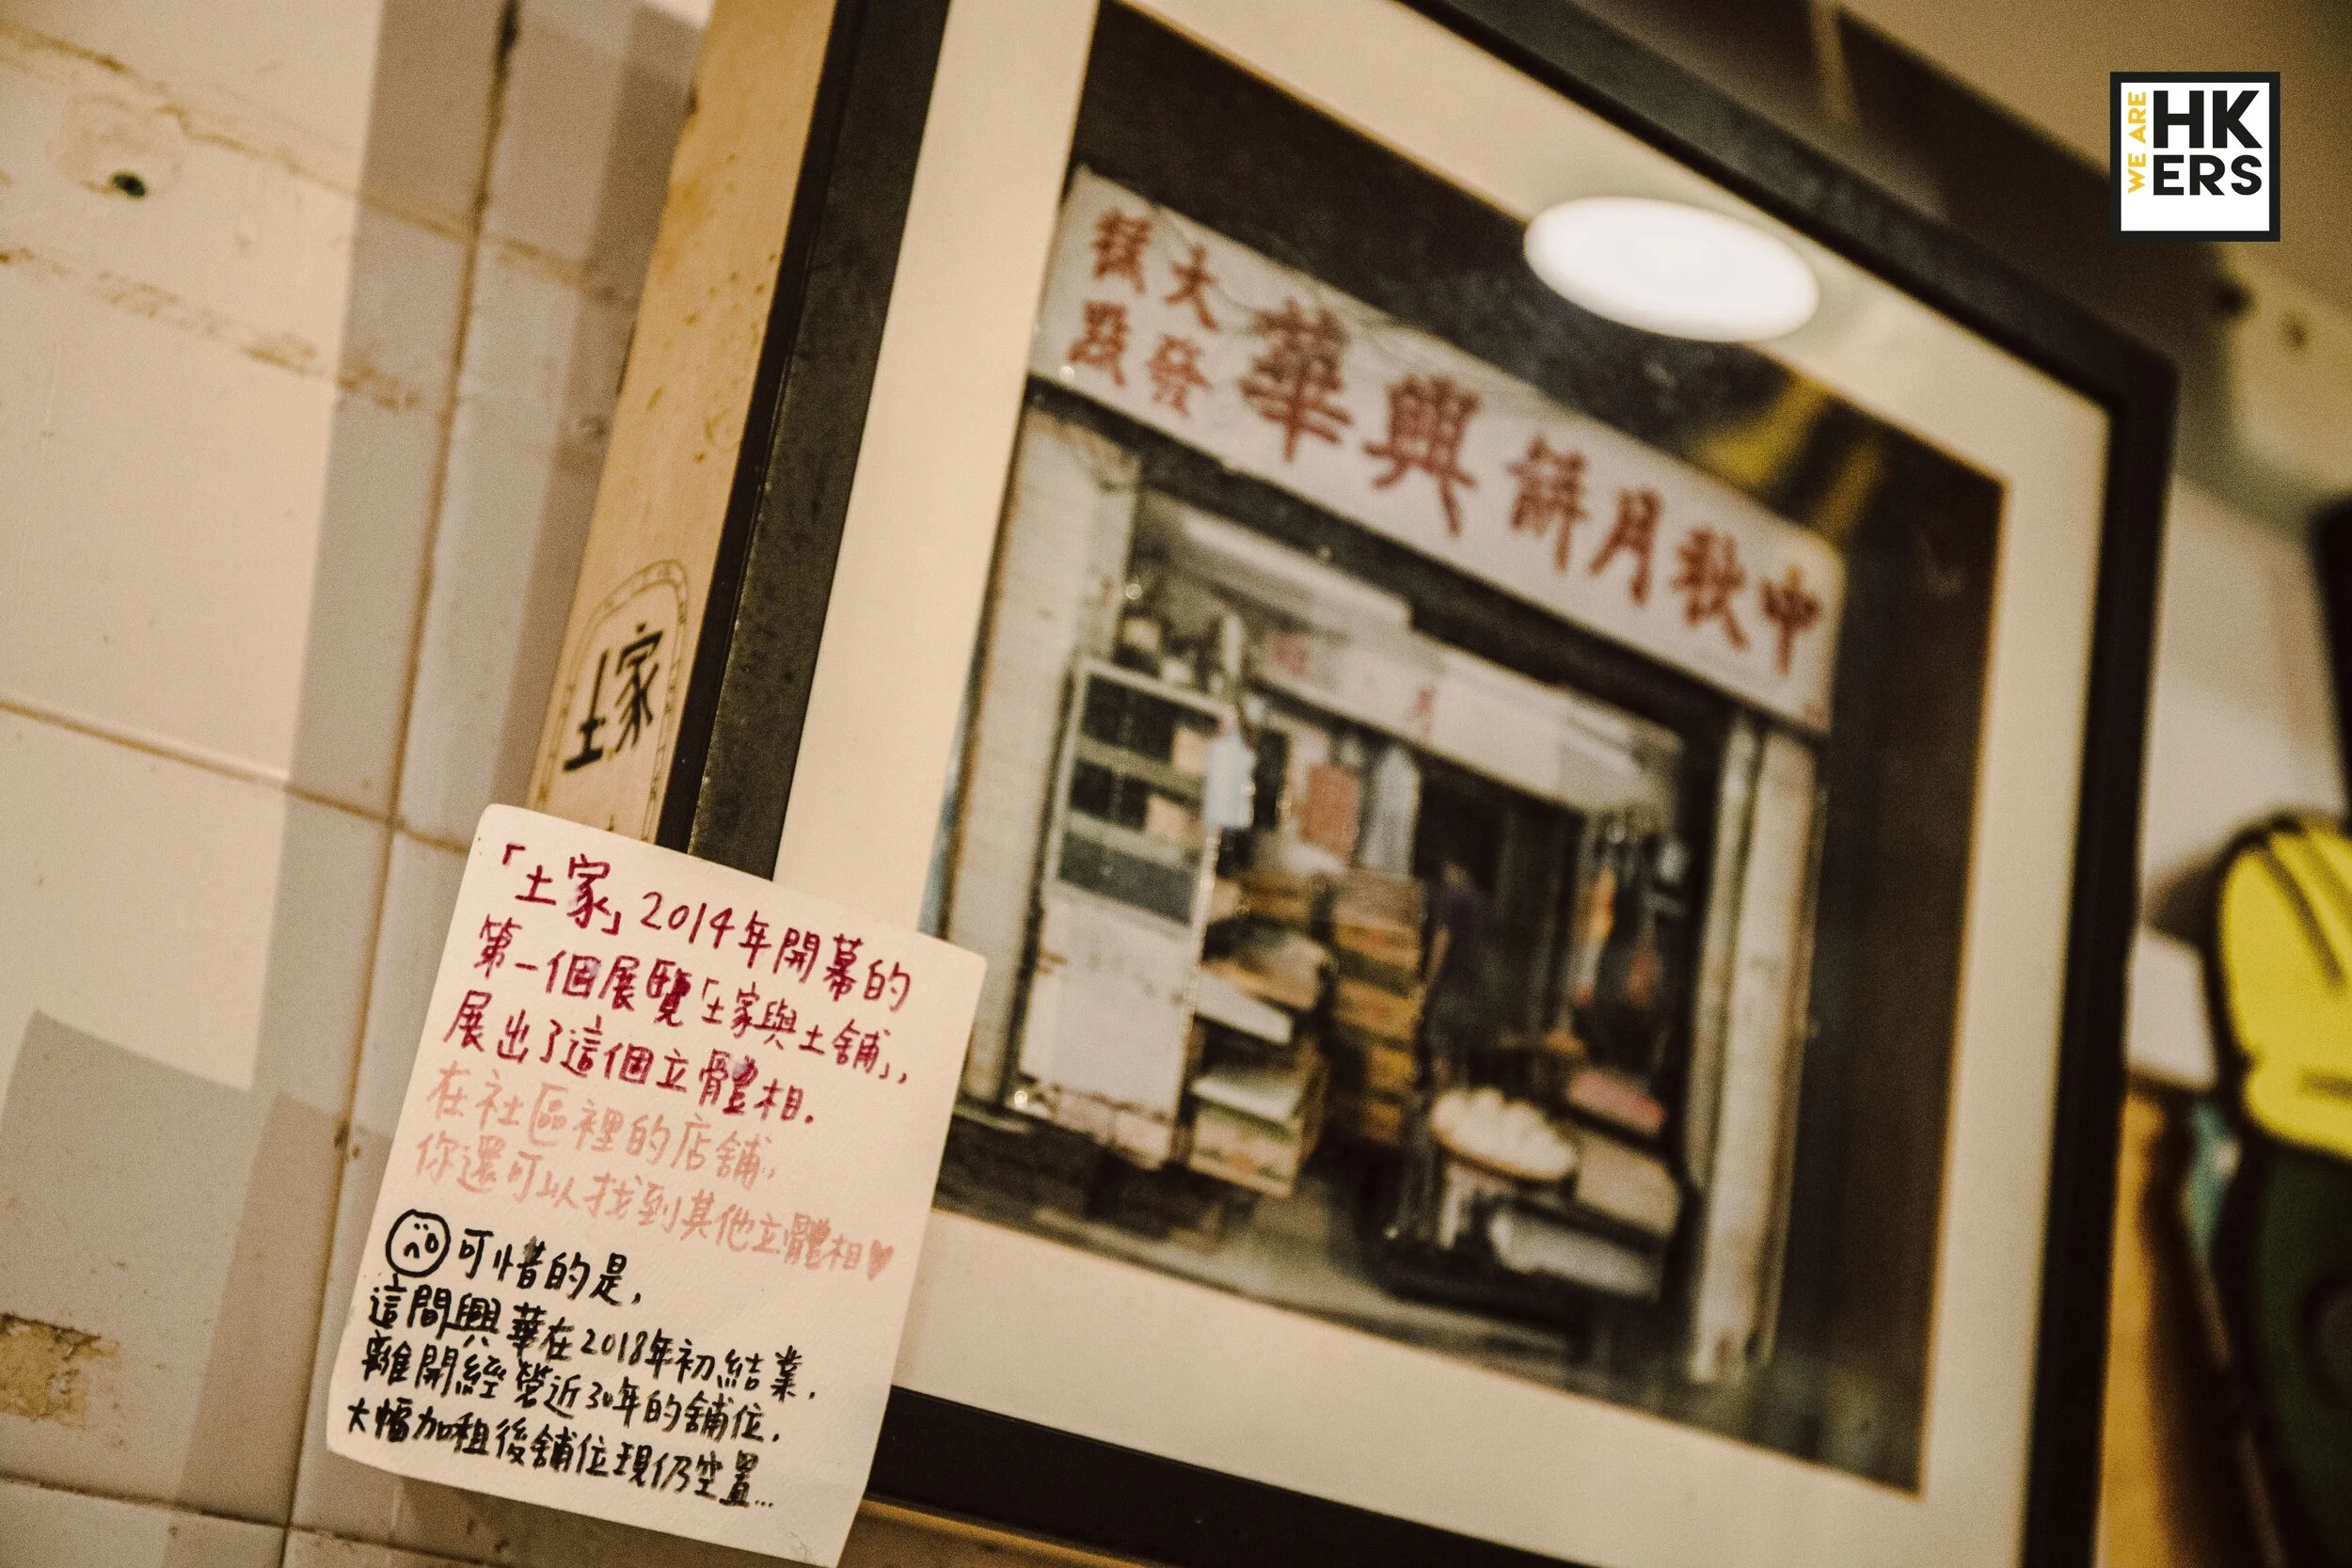 WE ARE
HK
ERS
大發
華興餅月秋中
土家
「土家」2014年開幕的
第一個展覽「土家與土舖」,
展出了這個立體相.
在社區裡的店舖,
你還可以找到其他立體相♥
可惜的是,
這間興華在2018年初結業,
離開經營近30年的舖位.
大幅加租後舖位現仍空置...